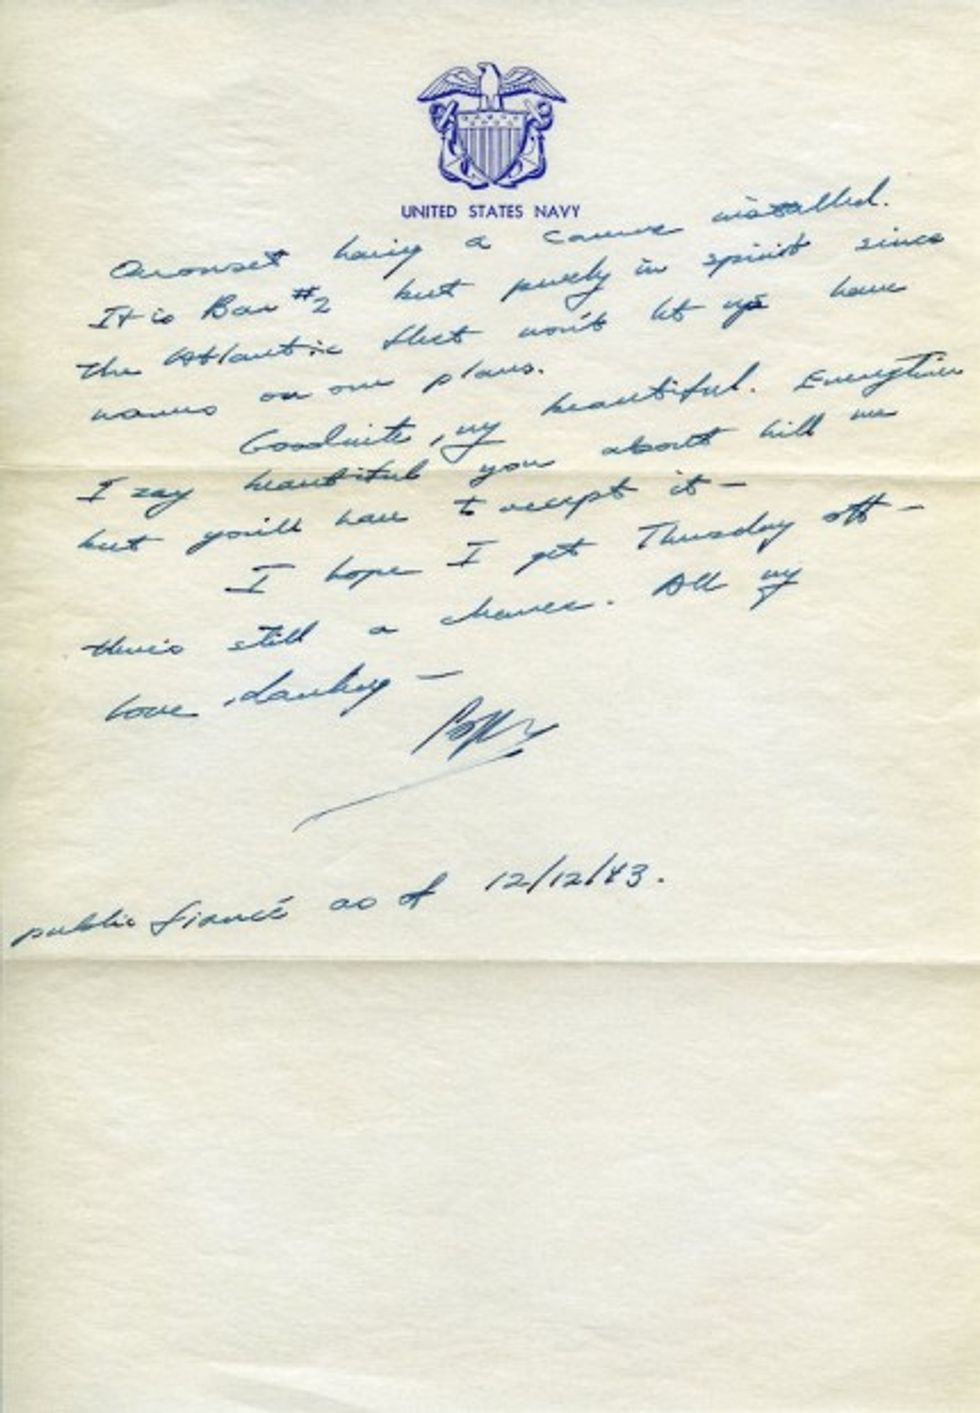 UNITED STATES NAVY
Quonset having a camera installed.
It is Bar #2 but purely in spirit since
the Atlantic fleet won't let us have
names on our planes.
Goodnite, my beautiful. Everytime
I say beautiful you about kill me
but you'll have to accept it —
I hope I get Thursday off —
there's still a chance. All my
love, darling —
Poppy
public fiancé as of 12/12/43.